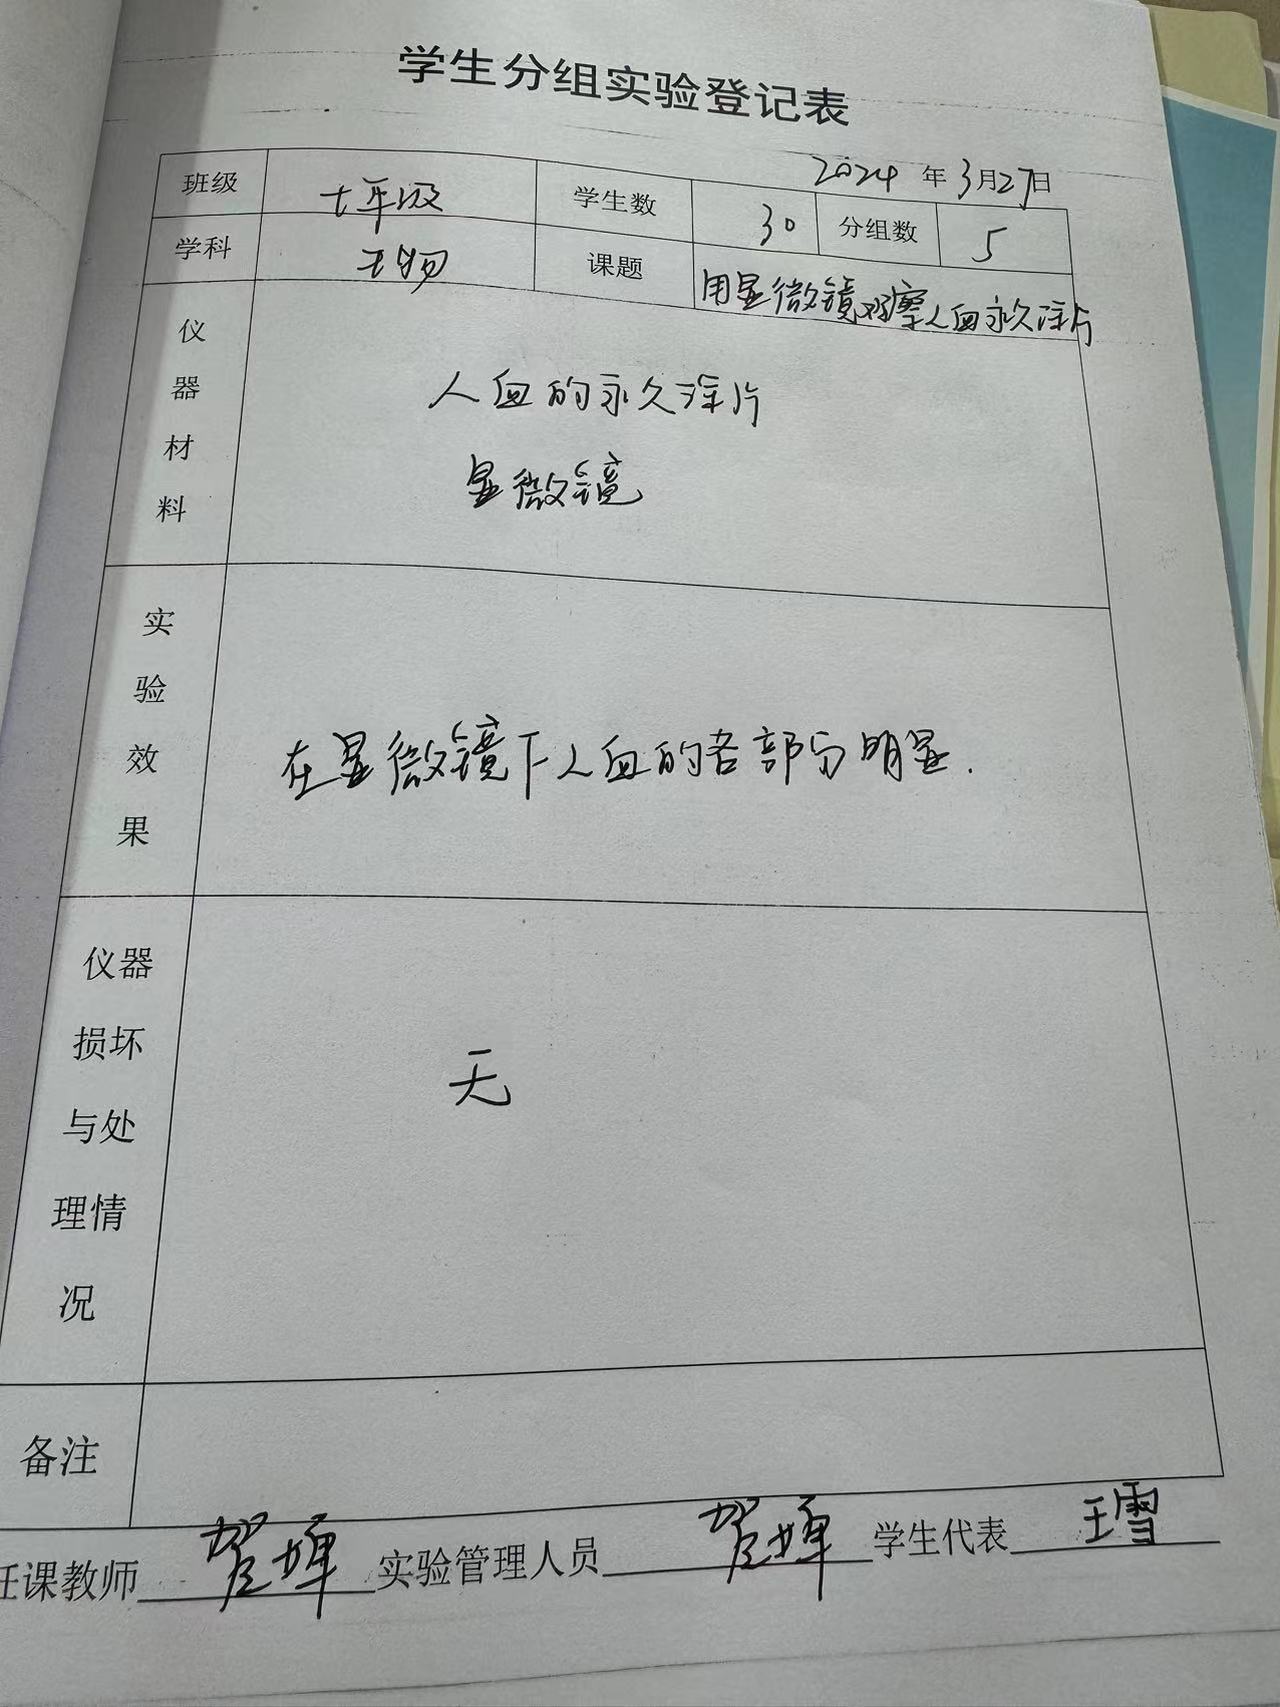 学生分组实验登记表
2024 年 3月27日
班级 七年级 学生数 30 分组数 5
学科 生物 课题 用显微镜观察人血永久涂片
仪器材料
人血的永久涂片
显微镜
实验效果
在显微镜下人血的各部分明显.
仪器损坏与处理情况
无
备注
任课教师 贺 实验管理人员 贺 学生代表 王雪